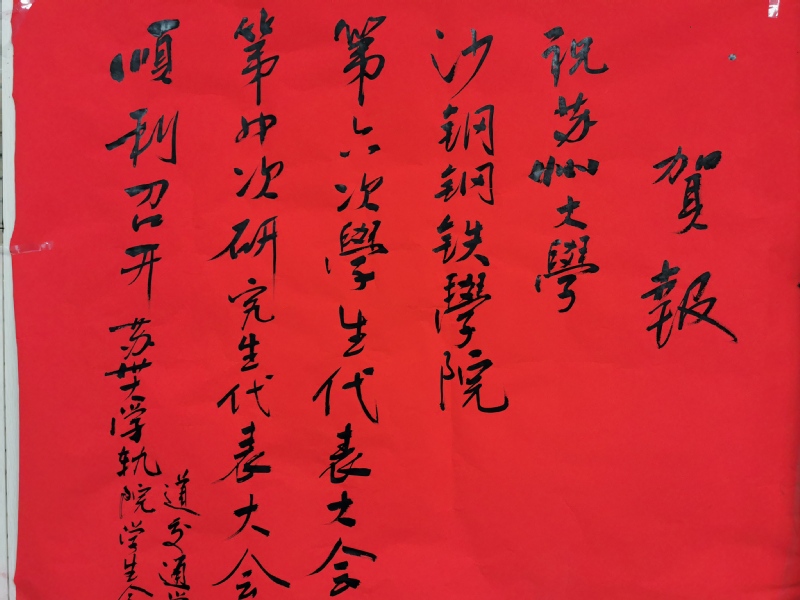 賀報
祝苏州大學
沙钢钢铁學院
第六次學生代表大会
第四次研究生代表大会
順利召开
苏州大学轨
道交通学
院学生会